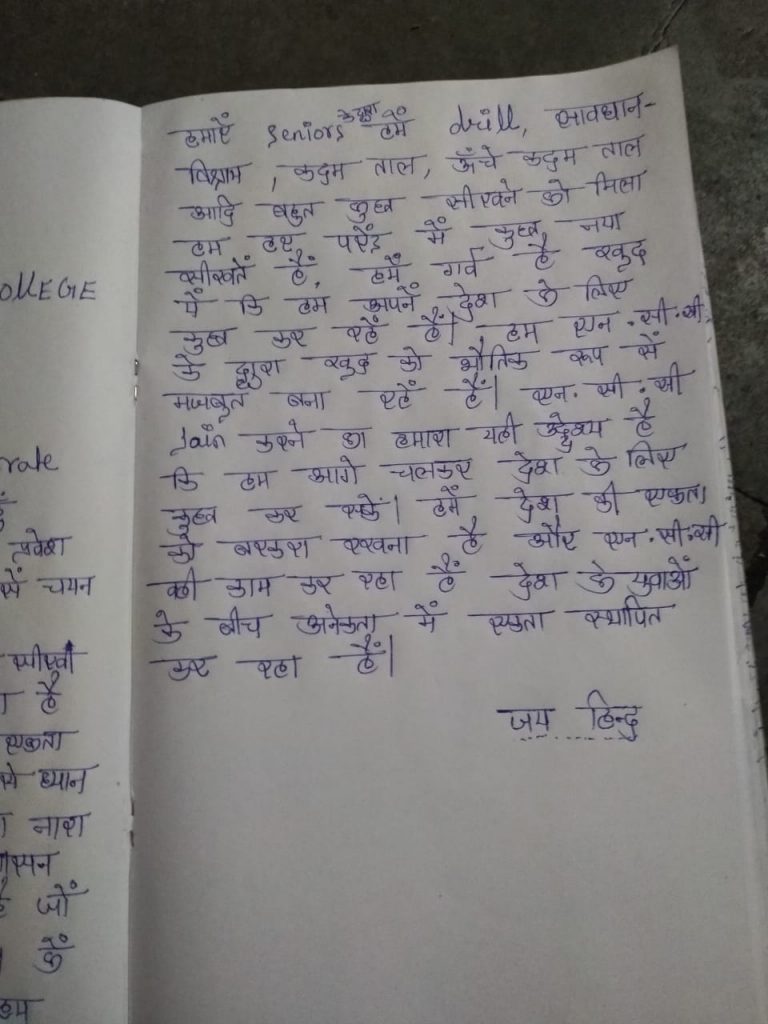 OLLEGE
rate
प्रवेश
से चयन
सीखी
ा है
एकता
से ध्यान
ा नारा
ासन
है जों
हम
हमारें seniors के द्वारा हमें drill, सावधान-
विश्राम, कदम ताल, ऊँचे कदम ताल
आदि बहुत कुछ सीखने को मिला
हम हर परेड में कुछ नया
सीखतें हैं, हमें गर्व है खुद
में कि हम अपनें देश के लिए
कुछ कर रहें हैं।, हम एन.सी.सी.
के द्वारा खुद को भौतिक रूप सें
मजबूत बना रहें हैं। एन.सी.सी
Join करने का हमारा यही उद्देश्य है
कि हम आगे चलकर देश के लिए
कुछ कर सकें। हमें देश की एकता
को बरकरा रखना है और एन.सी.सी
वही काम कर रहा हैं देश के युवाओं
के बीच अनेकता में एकता स्थापित
कर रहा हैं।
जय हिन्द